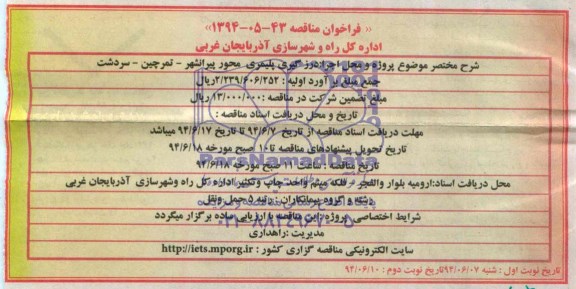 « فراخوان مناقصه ۴۳-۰۵-۱۳۹۴»
اداره کل راه و شهرسازی آذربایجان غربی
شرح مختصر موضوع پروژه و محل اجرا:درز گیری پلیمری محور پیرانشهر - تمرچین - سردشت
جمع مبلغ برآورد اولیه : ۲/۲۳۹/۶۰۶/۲۵۲ریال
مبلغ تضمین شرکت در مناقصه :۱۳/۰۰۰/۰۰۰ ریال
تاریخ و محل دریافت اسناد مناقصه :
مهلت دریافت اسناد مناقصه از تاریخ ۹۴/۶/۷ تا تاریخ ۹۴/۶/۱۷ میباشد
تاریخ تحویل پیشنهادهای مناقصه تا۱۰ صبح مورخه ۹۴/۶/۱۸
تاریخ مناقصه : ساعت ۱۱ صبح مورخه ۹۴/۶/۱۸
ParsNamadData
محل دریافت اسناد:ارومیه بلوار والفجر - فلکه میثم واحد چاپ وتکثیر اداره کل راه وشهرسازی آذربایجان غربی
رشته و گروه پیمانکاران : رتبه ۵ حمل ونقل
شرایط اختصاصی پروژه :این مناقصه با ارزیابی ساده برگزار میگردد
مدیریت :راهداری
سایت الکترونیکی مناقصه گزاری کشور : http://iets.mporg.ir
تاریخ نوبت اول : شنبه ۹۴/۰۶/۰۷تاریخ نوبت دوم : ۹۴/۰۶/۱۰